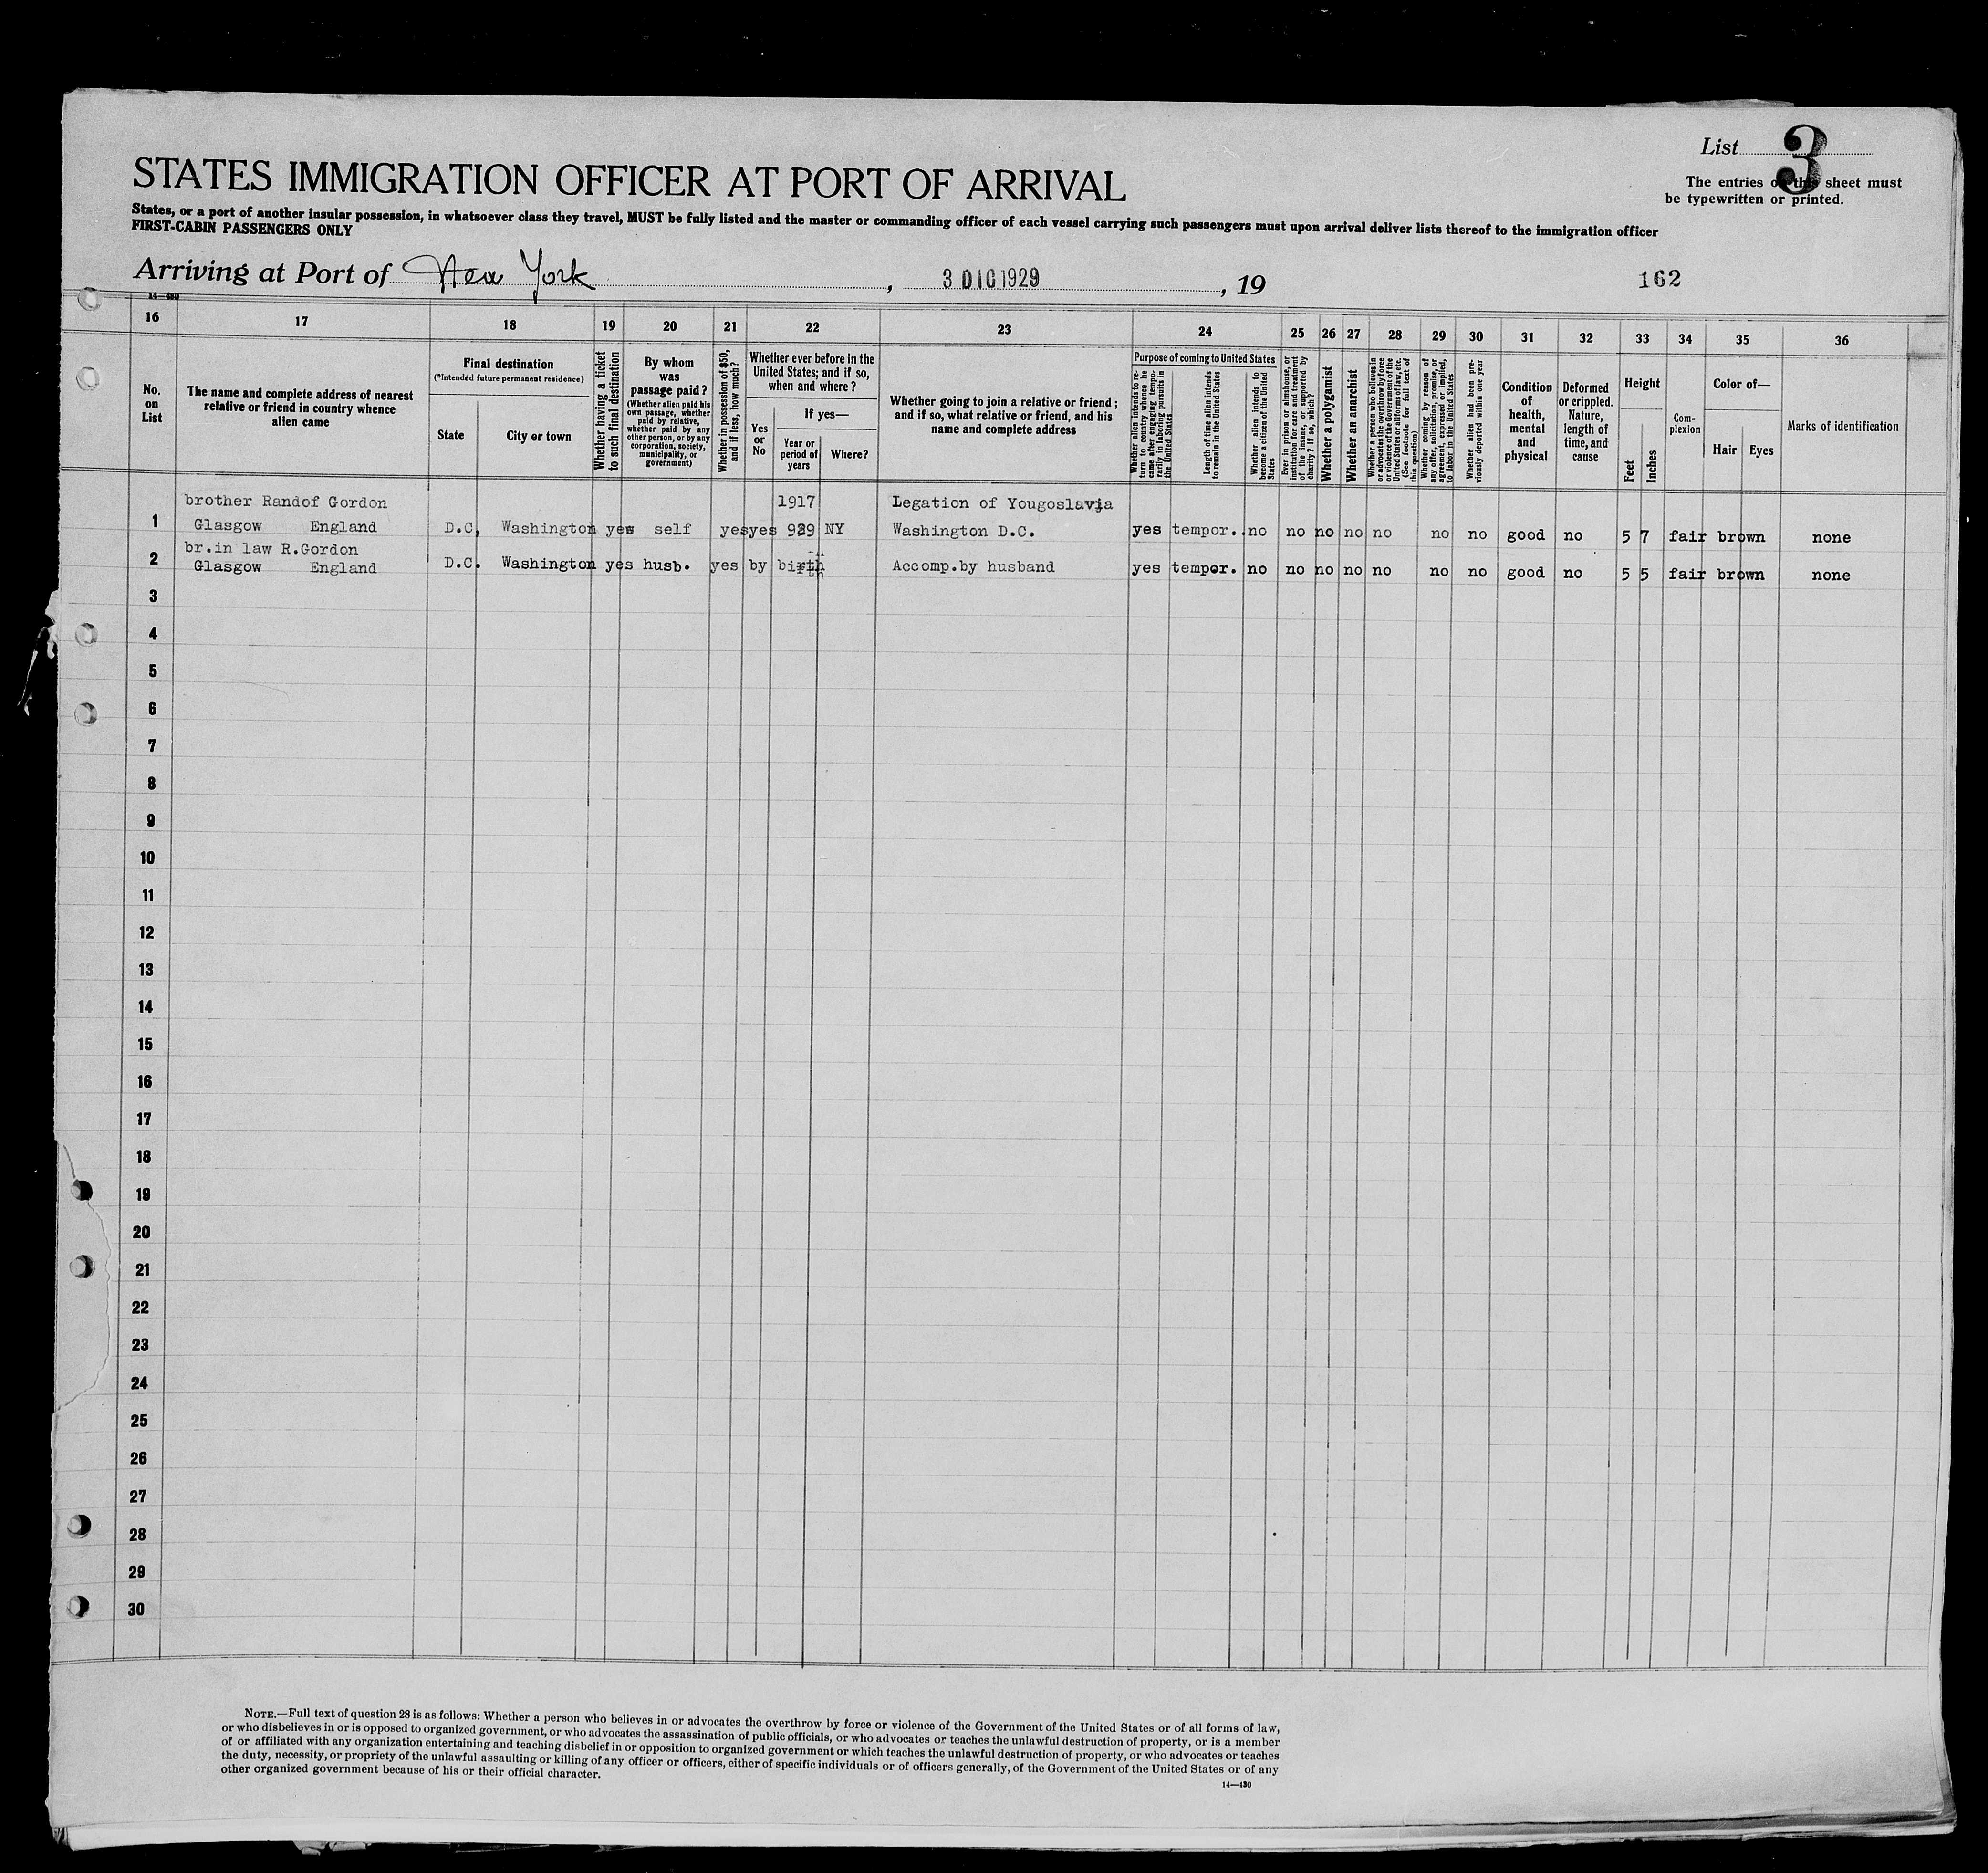 List 3
STATES IMMIGRATION OFFICER AT PORT OF ARRIVAL
The entries on this sheet must
be typewritten or printed.
States, or a port of another insular possession, in whatsoever class they travel, MUST be fully listed and the master or commanding officer of each vessel carrying such passengers must upon arrival deliver lists thereof to the immigration officer
FIRST-CABIN PASSENGERS ONLY
Arriving at Port of New York, 3 DIC 1929, 19
162
14—430
16 17 18 19 20 21 22 23 24 25 26 27 28 29 30 31 32 33 34 35 36
No.
on
List
The name and complete address of nearest
relative or friend in country whence
alien came
Final destination
(*Intended future permanent residence)
State
City or town
Whether having a ticket
to such final destination
By whom
was
passage paid?
(Whether alien paid his
own passage, whether
paid by relative,
whether paid by any
other person, or by any
corporation, society,
municipality, or
government)
Whether in possession of $50,
and if less, how much?
Whether ever before in the
United States; and if so,
when and where?
Yes
or
No
If yes—
Year or
period of
years
Where?
Whether going to join a relative or friend;
and if so, what relative or friend, and his
name and complete address
Purpose of coming to United States
Whether alien intends to re-
turn to country whence he
came after engaging tempo-
rarily in laboring pursuits in
the United States
Length of time alien intends
to remain in the United States
Whether alien intends to
become a citizen of the United
States
Ever in prison or almshouse, or
institution for care and treatment
of the insane, or supported by
charity? If so, which?
Whether a polygamist
Whether an anarchist
Whether a person who believes in
or advocates the overthrow by force
or violence of the Government of the
United States or all forms of law, etc.
(See footnote for full text of
this question)
Whether coming by reason of
any offer, solicitation, promise, or
agreement, expressed or implied,
to labor in the United States
Whether alien had been pre-
viously deported within one year
Condition
of
health,
mental
and
physical
Deformed
or crippled.
Nature,
length of
time, and
cause
Height
Feet
Inches
Com-
plexion
Color of—
Hair
Eyes
Marks of identification
brother Randof Gordon 1917 Legation of Yougoslavia
1 Glasgow England D.C, Washington yes self yes yes 929 NY Washington D.C. yes tempor. no no no no no no no good no 5 7 fair brown none
br.in law R.Gordon
2 Glasgow England D.C. Washington yes husb. yes by birth Accomp.by husband yes tempor. no no no no no no no good no 5 5 fair brown none
3
4
5
6
7
8
9
10
11
12
13
14
15
16
17
18
19
20
21
22
23
24
25
26
27
28
29
30
NOTE.—Full text of question 28 is as follows: Whether a person who believes in or advocates the overthrow by force or violence of the Government of the United States or of all forms of law,
or who disbelieves in or is opposed to organized government, or who advocates the assassination of public officials, or who advocates or teaches the unlawful destruction of property, or is a member
of or affiliated with any organization entertaining and teaching disbelief in or opposition to organized government or which teaches the unlawful destruction of property, or who advocates or teaches
the duty, necessity, or propriety of the unlawful assaulting or killing of any officer or officers, either of specific individuals or of officers generally, of the Government of the United States or of any
other organized government because of his or their official character.
14—430